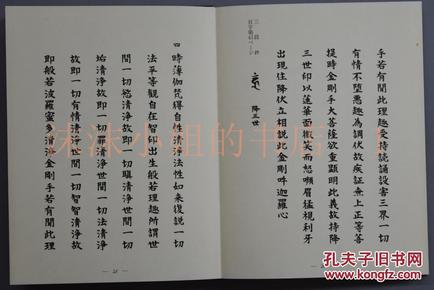 手若有聞此理趣受持讀誦設害三界一切
有情不墮惡趣為調伏故疾証無上正等菩
提時金剛手大菩薩欲重顯明此義故持降
三世印以蓮華面微笑而怒顰眉猛視利牙
出現住降伏立相說此金剛吽迦羅心
降三世
四 時薄伽梵得自性清淨法性如來復說一切
法平等觀自在智印出生般若理趣所謂世
間一切慾清淨故即一切瞋清淨世間一切
垢清淨故即一切罪清淨世間一切法清淨
故即一切有情清淨世間一切智智清淨故
即般若波羅蜜多清淨金剛手若有聞此理
— 25 —
孔夫子旧书网